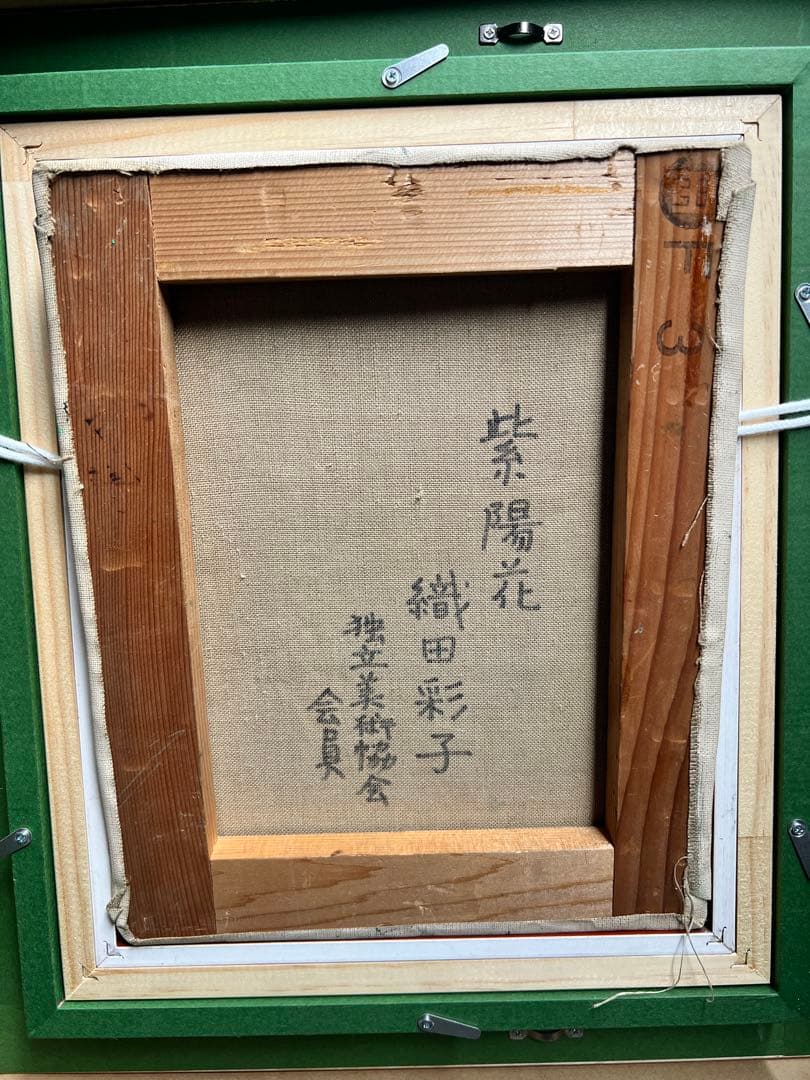 紫陽花
織田彩子
独立美術協会
会員
F 3